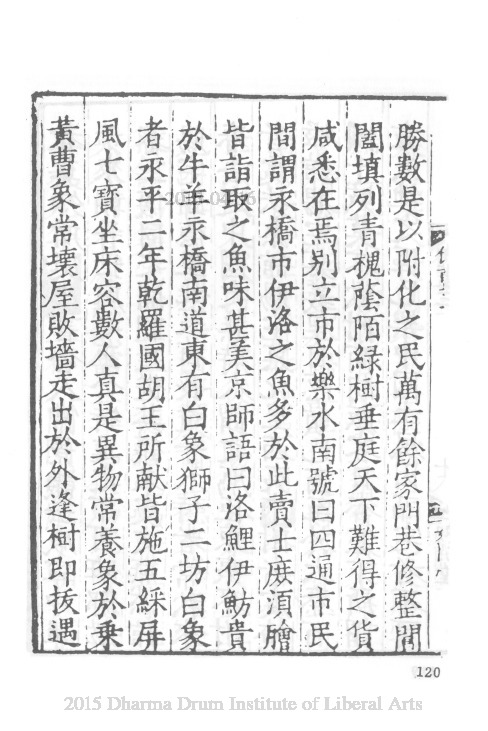 勝數是以附化之民萬有餘家門巷修整閶
闔填列青槐蔭陌綠樹垂庭天下難得之貨
咸悉在焉別立市於樂水南號曰四通市民
間謂永橋市伊洛之魚多於此賣士庶須膾
皆詣取之魚味甚美京師語曰洛鯉伊魴貴
於牛羊永橋南道東有白象獅子二坊白象
者永平二年乾羅國胡王所献皆施五綵屏
風七寶坐床容數人真是異物常養象於乗
黃曹象常壞屋敗墻走出於外逢樹即拔遇
120
2015 Dharma Drum Institute of Liberal Arts